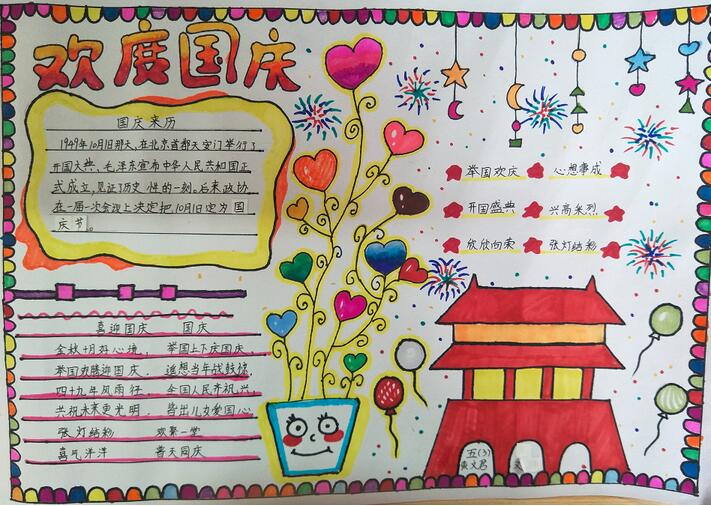 欢度国庆
国庆来历
1949年10月1日那天,在北京首都天安门举行了
开国大典,毛泽东宣布中华人民共和国正
式成立,见证了历史性的一刻,后来政协
在一届一次会议上决定把10月1日定为国
庆节。
举国欢庆 心想事成
开国盛典 兴高采烈
欣欣向荣 张灯结彩
喜迎国庆 国庆
金秋十月好心境, 举国上下庆国庆,
举国欢腾迎国庆, 遥想当年战鼓擂,
四十九年风雨征, 全国人民齐祝兴,
共祝未来更光明, 皆出儿女爱国心,
张灯结彩 欢聚一堂
喜气洋洋 普天同庆
五(3)
黄文君